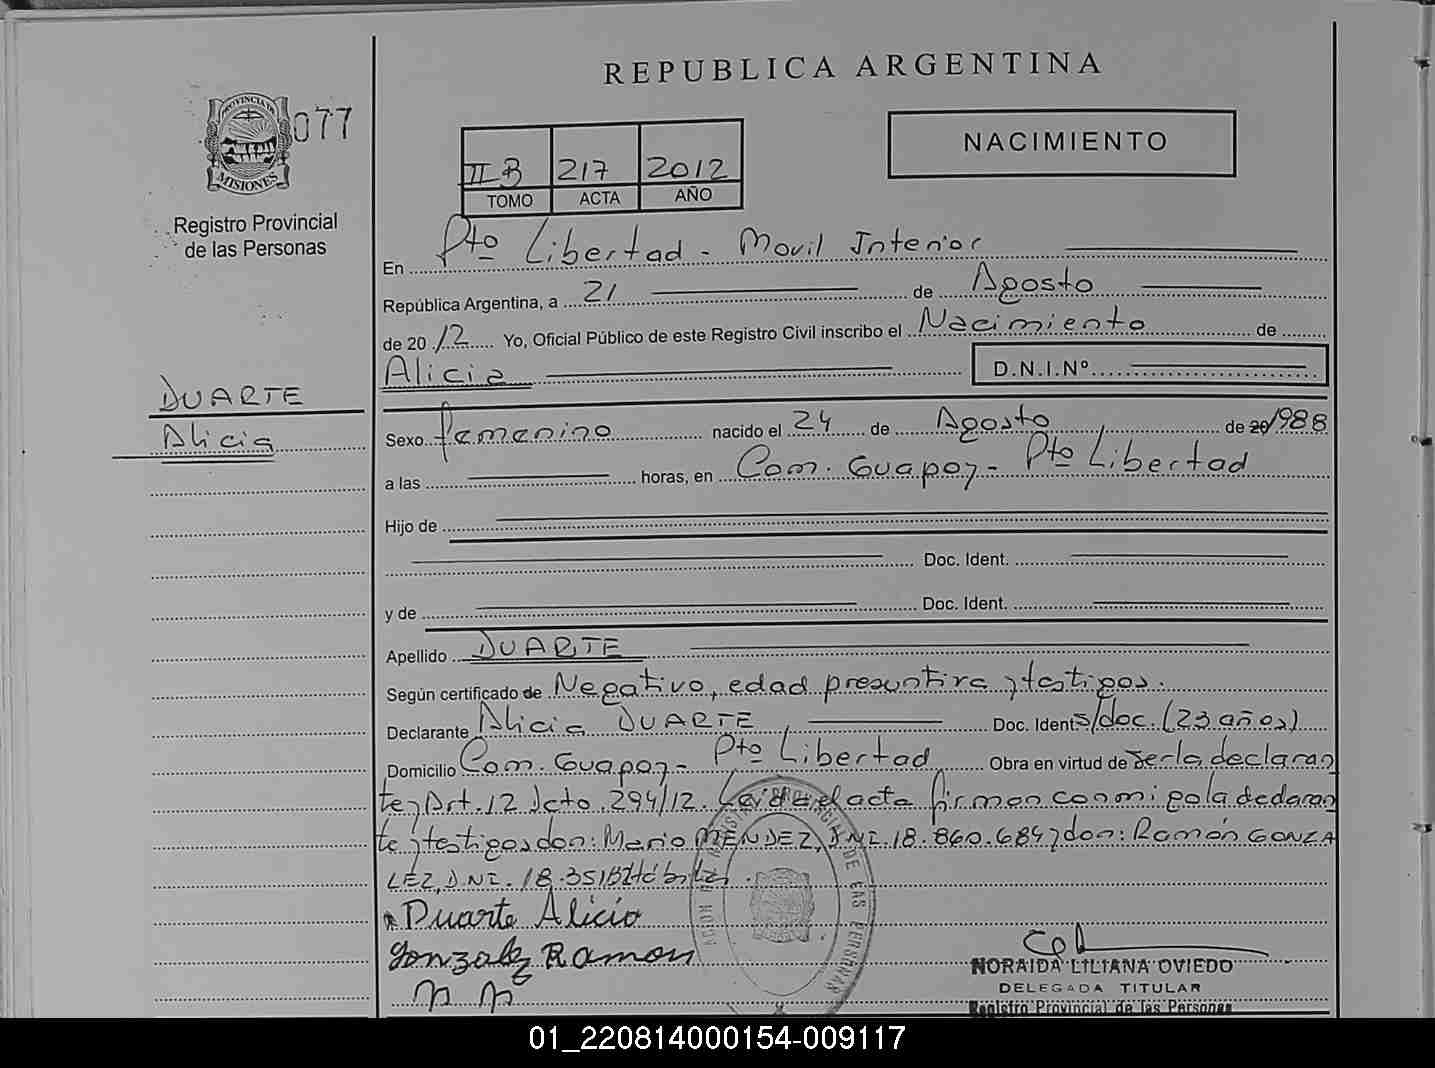 REPUBLICA ARGENTINA
PROVINCIA DE
MISIONES
077
Registro Provincial
de las Personas
II B 217 2012
TOMO ACTA AÑO
NACIMIENTO
En Pto Libertad - Movil Interior
República Argentina, a 21 de Agosto
de 2012 Yo, Oficial Público de este Registro Civil inscribo el Nacimiento de
Alicia D.N.I.Nº
DUARTE
Alicia
Sexo femenino nacido el 24 de Agosto de 20 1988
a las horas, en Com. Guapoy - Pto Libertad
Hijo de
Doc. Ident.
y de Doc. Ident.
Apellido DUARTE
Según certificado de Negativo, edad presuntiva y testigos.
Declarante Alicia DUARTE Doc. Ident s/doc. (23 años)
Domicilio Com. Guapoy - Pto Libertad Obra en virtud de ser la declaran
te y Art. 12 Dcto. 294/12. Leida el acta firman conmigo la declaran
te y testigos don: Mario MENDEZ, DNI. 18.860.684 y don: Ramón GONZA
LEZ, D.N.I. 18.351
Duarte Alicia
Gonzalez Ramon
NORAIDA LILIANA OVIEDO
DELEGADA TITULAR
Registro Provincial de las Personas
01_220814000154-009117